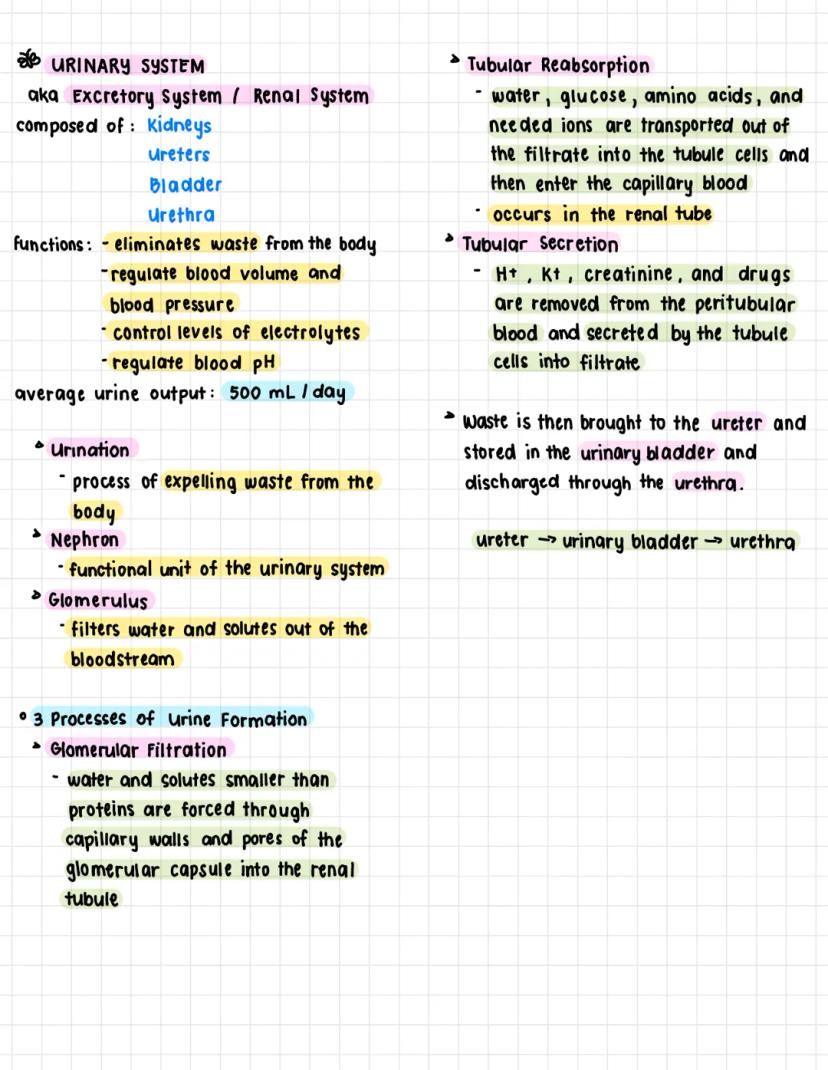 URINARY SYSTEM
aka Excretory System / Renal System
composed of : Kidneys
Ureters
Bladder
Urethra
functions: - eliminates waste from the body
- regulate blood volume and
blood pressure
- control levels of electrolytes
- regulate blood pH
average urine output: 500 mL / day
Urination
- process of expelling waste from the
body
Nephron
- functional unit of the urinary system
Glomerulus
- filters water and solutes out of the
bloodstream
° 3 Processes of Urine Formation
Glomerular Filtration
- water and solutes smaller than
proteins are forced through
capillary walls and pores of the
glomerular capsule into the renal
tubule
Tubular Reabsorption
- water, glucose, amino acids, and
needed ions are transported out of
the filtrate into the tubule cells and
then enter the capillary blood
- occurs in the renal tube
Tubular Secretion
- H+, K+, creatinine, and drugs
are removed from the peritubular
blood and secreted by the tubule
cells into filtrate
Waste is then brought to the ureter and
stored in the urinary bladder and
discharged through the urethra.
ureter → urinary bladder → urethra